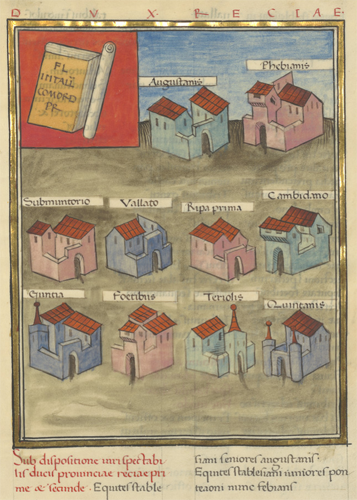 DVX RECIAE.
FL
INTALL
COMORD
PR
Augustanis
Phebianis
Submuntorio
Vallato
Ripa prima
Cambidano
Guntia
Foetibus
Teriolis
Quintanis
Sub dispositione uiri spectabi
lis ducis prouinciae reciae pri
me & secunde. Equites stable
siani seniores augustanis.
Equites stablesiani iuniores pon
te aoni nunc febianis